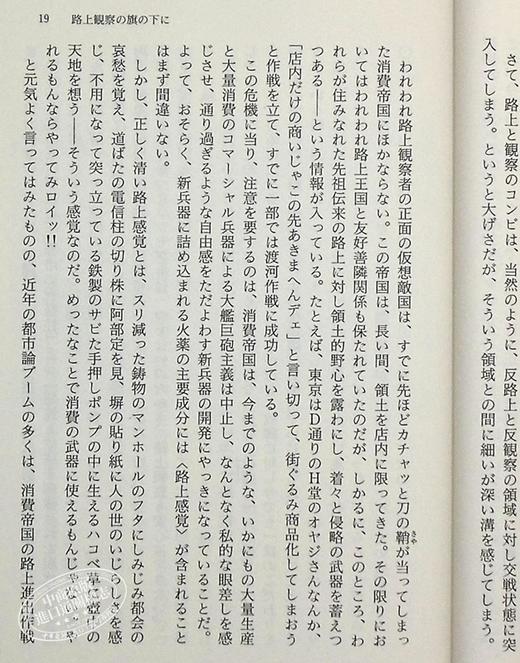 19　路上観察の旗の下に
さて、路上と観察のコンビは、当然のように、反路上と反観察の領域に対し交戦状態に突
入してしまう。というと大げさだが、そういう領域との間に細いが深い溝を感じてしまう。
われわれ路上観察者の正面の仮想敵国は、すでに先ほどカチャッと刀の鞘が当ってしまっ
きや
た消費帝国にほかならない。この帝国は、長い間、領土を店内に限ってきた。その限りにお
いてはわれわれ路上王国と友好善隣関係も保たれていたのだが、しかるに、このところ、わ
れらが住みなれた先祖伝来の路上に対し領土的野心を露わにし、着々と侵略の武器を蓄えつ
つある――という情報が入っている。たとえば、東京はD通りのH堂のオヤジさんなんか、
「店内だけの商いじゃこの先あきまへんデェ」と言い切って、街ぐるみ商品化してしまおう
と作戦を立て、すでに一部では渡河作戦に成功している。
この危機に当り、注意を要するのは、消費帝国は、今までのような、いかにもの大量生産
と大量消費のコマーシャル兵器による大艦巨砲主義は中止し、なんとなく私的な眼差しを感
じさせ、通り過ぎるような自由感をただよわす新兵器の開発にやっきになっていることだ。
よって、おそらく、新兵器に詰め込まれる火薬の主要成分には〈路上感覚〉が含まれること
はまず間違いない。
しかし、正しく清い路上感覚とは、スリ減った鋳物のマンホールのフタにしみじみ都会の
哀愁を覚え、道ばたの電信柱の切り株に阿部定を見、塀の貼り紙に人の世のいじらしさを感
じ、不用になって突っ立っている鉄製のサビた手押しポンプの中に生えるハコベ草に壺中の
天地を想う――そういう感覚なのだ。めったなことで消費の武器に使えるもんじゃ
れるもんならやってみロイッ!!
と元気よく言ってはみたものの、近年の都市論ブームの多くは、消費帝国の路上進出作戦